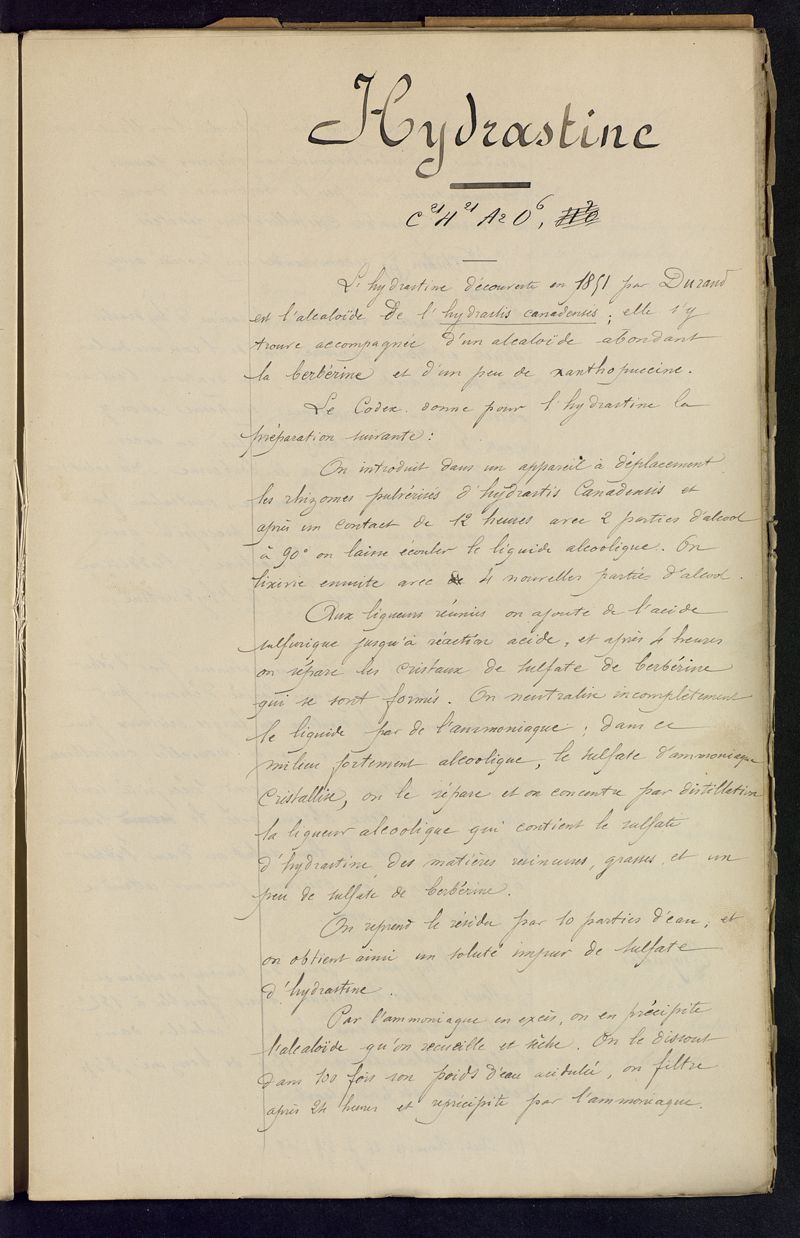 Hydrastine
C²¹ H²¹ Az O⁶, H²O
L'hydrastine découverte en 1851 par Durand
est l'alcaloïde de l'hydrastis canadensis ; elle s'y
trouve accompagnée d'un alcaloïde abondant
la berbérine et d'un peu de xanthopuccine.
Le Codex donne pour l'hydrastine la
préparation suivante :
On introduit dans un appareil à déplacement
les rhizomes pulvérisés d'hydrastis Canadensis et
après un contact de 12 heures avec 2 parties d'alcool
à 90° on laisse écouler le liquide alcoolique. On
lixivie ensuite avec de 4 nouvelles parties d'alcool.
Aux liqueurs réunies on ajoute de l'acide
sulfurique jusqu'à réaction acide, et après 4 heures
on sépare les cristaux de sulfate de berbérine
qui se sont formés. On neutralise incomplètement
le liquide par de l'ammoniaque ; dans ce
milieu fortement alcoolique, le sulfate d'ammoniaque
cristallise, on le sépare et on concentre par distillation
la liqueur alcoolique qui contient le sulfate
d'hydrastine des matières résineuses, grasses, et un
peu de sulfate de berbérine.
On reprend le résidu par 10 parties d'eau, et
on obtient ainsi un soluté impur de sulfate
d'hydrastine.
Par l'ammoniaque en excès, on en précipite
l'alcaloïde qu'on recueille et sèche. On le dissout
dans 100 fois son poids d'eau acidulée, on filtre
après 24 heures et reprécipite par l'ammoniaque.